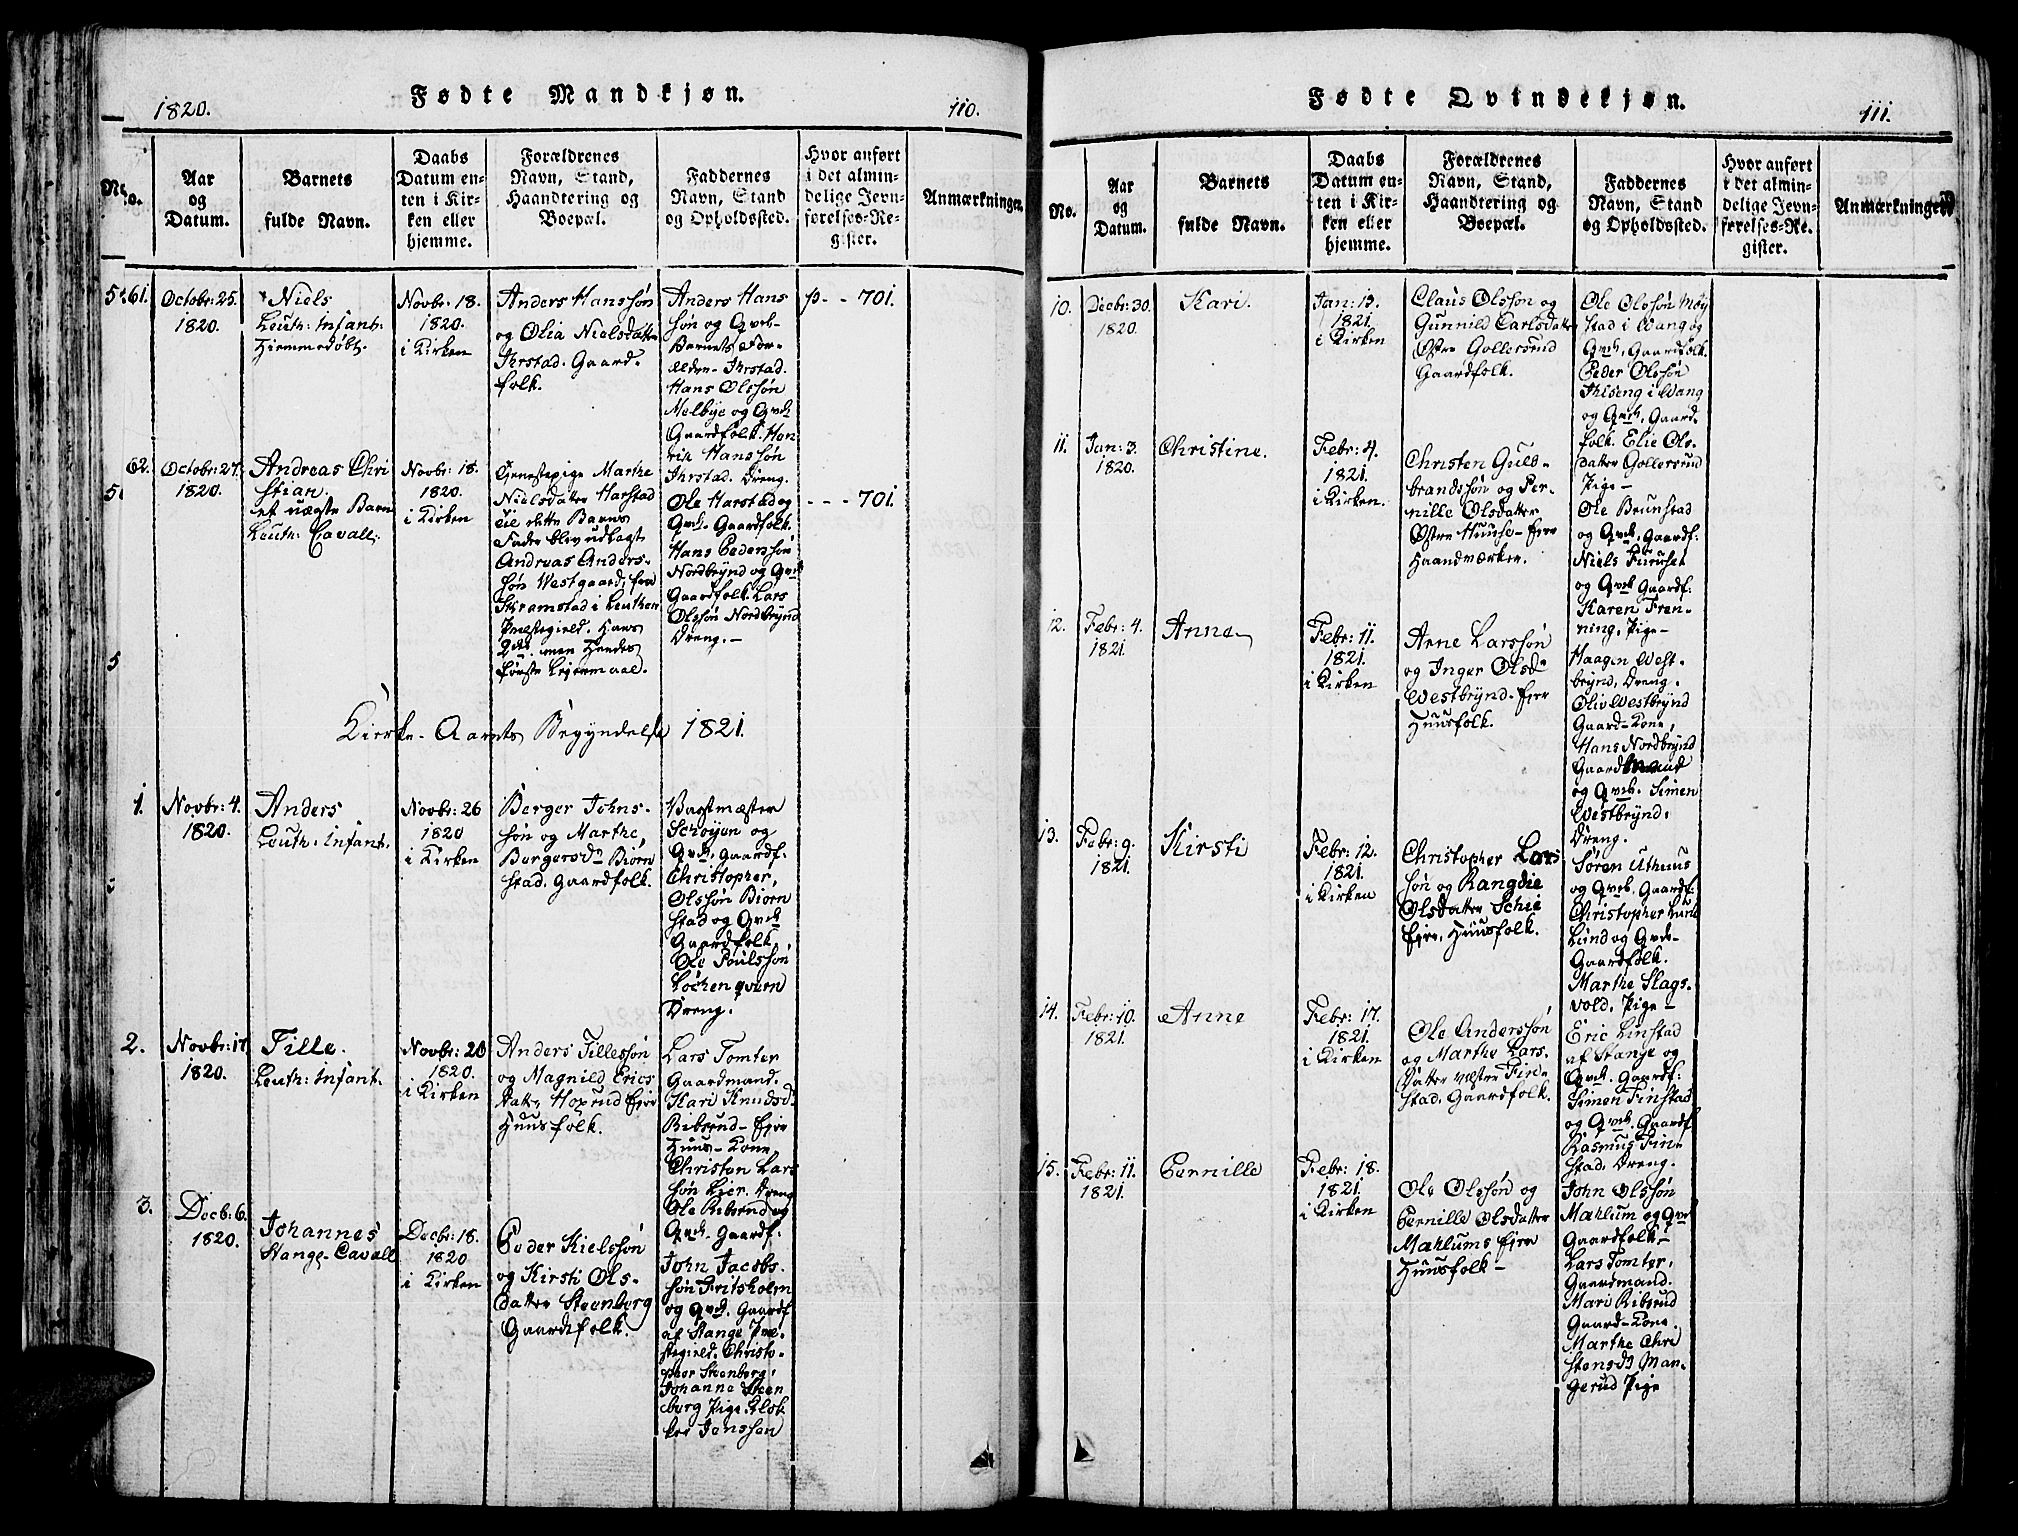 1820.
Fødte Mandkjøn.
110.
No.
Aar
og
Datum.
Barnets
fulde Navn.
Daabs
Datum en-
ten i Kir-
ken eller
hjemme.
Forældrenes
Navn, Stand,
Haandtering og
Boepæl.
Faddernes
Navn, Stand
og Opholdssted.
Hvor anført
i det almin-
delige Jevn-
førelses-Re-
gister.
Anmærkninger.
61.
Octobr: 25.
1820.
Niels
Leuth: Infant:
Hiemmedøbt.
Novbr: 18.
1820.
i Kirken
Anders Hanssøn
og Olia Nielsdatter
Ihrstad. Gaard-
folk.
Anders Hans
søn og Qvek-
Barnets For-
ælden- Ihrstad.
Hans Olssøn
Melbye og Qvek
Gaardfolk. Hen
rik Hanssøn
Ihrstad. Dreng.
p- - 701.
62.
Octobr: 27.
1820.
Andreas Chri
stian.
et uægte Barn
Leuth: Cavall:
Novbr: 18.
1820.
i Kirken
Tjenestepige Marthe
Nielsdatter Harstad
til dette Barns
Fader blev udlagt
Andreas Anders-
søn Westgaard, fra
Stramstad i Leuthen
Præstegield. Hans
2det men Hendes
første Leiermaal.
Ole Harstad og
Qvek. Gaardfolk.
Hans Pedersøn
Nordbrynd og Qvek
Gaardfolk. Lars
Olssøn Nordbrynd
Dreng.-
- - - 701.
Kirke-Aarets Begyndelse 1821.
1.
Novbr: 4.
1820.
Anders
Leuth: Infant.
Novbr: 26
1820
i Kirken
Berger Johns-
søn og Marthe,
Bergersdr Biørn
stad. Gaardfolk.
Vagtmæster
Schøyen og
Qvek. Gaardf:
Christopher,
Olssøn Biørn
stad og Qvek
Gaardfolk
Ole Poulssøn
Lochenqvern
Dreng.
2.
Novbr: 17
1820.
Tille.
Leuth: Infant.
Novbr: 26
1820.
i Kirken
Anders Tillessøn
og Magnild Erics
datter Hoxrud Ejer
Huusfolk.
Lars Tomter
Gaardmand.
Kari Knudsd.
Ribsrud- Ejer
Huus-Kone
Christen Lars
søn Lier. Dreng
Ole Ribsrud og
Qvek. Gaardf.
3.
Decb: 6.
1820.
Johannes
Stange-Cavall
Decbr: 18.
1820
i Kirken
Peder Kielssøn
og Kirsti Ols-
datter Steenberg
Gaardsfolk.
John Jacobs-
søn Fritsholm
og Qvek. Gaardf
af Stange Præ-
stegield. Christo-
pher Steenberg,
Johanne Steen
berg Pige. Klok
ker Jonsson
Fødte Qvindekjøn.
111.
No.
Aar
og
Datum.
Barnets
fulde Navn.
Daabs
Datum en-
ten i Kir-
ken eller
hjemme.
Forældrenes
Navn, Stand,
Haandtering og
Boepæl.
Faddernes
Navn, Stand
og Opholdssted.
Hvor anført
i det almin-
delige Jevn-
førelses-Re-
gister.
Anmærkninger
10.
Decbr: 30.
1820.
Kari.
Jan: 13.
1821.
i Kirken
Claus Olssøn og
Gunnild Carlsdatter
Østre Gollersrud
Gaardfolk.
Ole Olssøn Møy
stad i Wang og
Qvek. Gaardfolk.
Peder Olssøn
Ihlseng i Wang
og Qvek. Gaard-
folk. Elie Ols-
datter Gollersrud
Pige-
11.
Jan: 3.
1820.
Christine.
Febr: 4.
1821.
i Kirken.
Christen Gulb-
brandssøn og Per-
nille Olsdatter
Østre Huuse- Ejer
Haandværker.
Ole Brunstad
og Qvek. Gaardf:
Niels Furuset
og Qvek Gaardf:
Karen Fren-
ning, Pige-
12.
Febr: 4.
1821.
Anne
Febr: 11.
1821.
i Kirken
Arne Larssøn
og Inger Olsdr
Westbrynd- Ejer
Huusfolk.
Haagen West-
brynd, Dreng.
Oliv Westbrynd
Gaard-Kone,
Hans Nordbrynd
og Qvek. Simen
Westbrynd,
Dreng.
13.
Febr: 9.
1821.
Kirsti
Febr: 12.
1821.
i Kirken
Christopher Lars
søn og Rangdie
Olsdatter Schie
Ejer. Huusfolk.
Søren Uthuus
og Qvek. Gaardf.
Christopher Lurk
Lund og Qvek-
Gaardfolk.
Marthe Slags-
vold. Pige-
14.
Febr: 10.
1821.
Anne
Febr: 17.
1821.
i Kirken
Ole Anderssøn
og Marthe Lars-
datter vester Fin-
stad. Gaardfolk.
Eric Linstad
af Stange og
Qvek. Gaardf:
Simen Finstad
og Qvek. Gaardf
Rasmus Fin-
stad. Dreng.
15.
Febr: 11.
1821.
Pernille
Febr: 18.
1821.
i Kirken
Ole Olssøn og
Pernille Olsdatter
Mahlums Ejer
Huusfolk-
John Olssøn
Mahlum og Qvek
Gaardfolk-
Lars Tomter,
Gaardmand.
Mari Ribsrud
Gaard-Kone.
Marthe Chri
stensdr Man-
gerud Pige